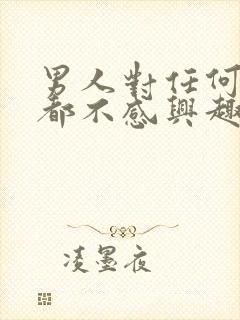 男人對任何
都不感興趣
凌墨夜